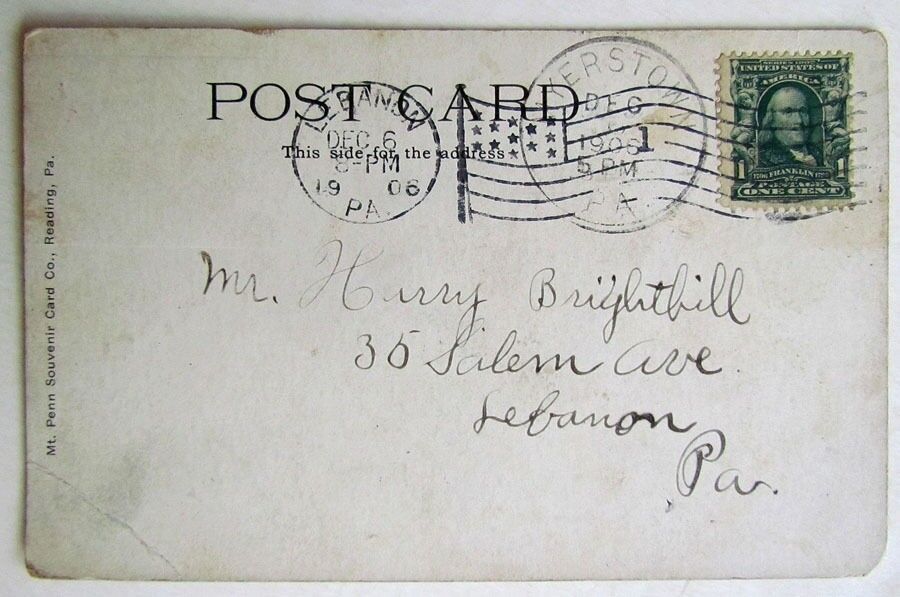 POST CARD
This side for the address
LEBANON
DEC 6
8-PM
19 06
PA.
YERSTOWN
DEC
1906
5 PM
PA.
1
SERIES 1902
UNITED STATES OF
AMERICA
1 1
1706 FRANKLIN 1790
POSTAGE
ONE CENT
Mr. Harry Brightbill
35 Salem Ave.
Lebanon
Pa.
Mt. Penn Souvenir Card Co., Reading, Pa.